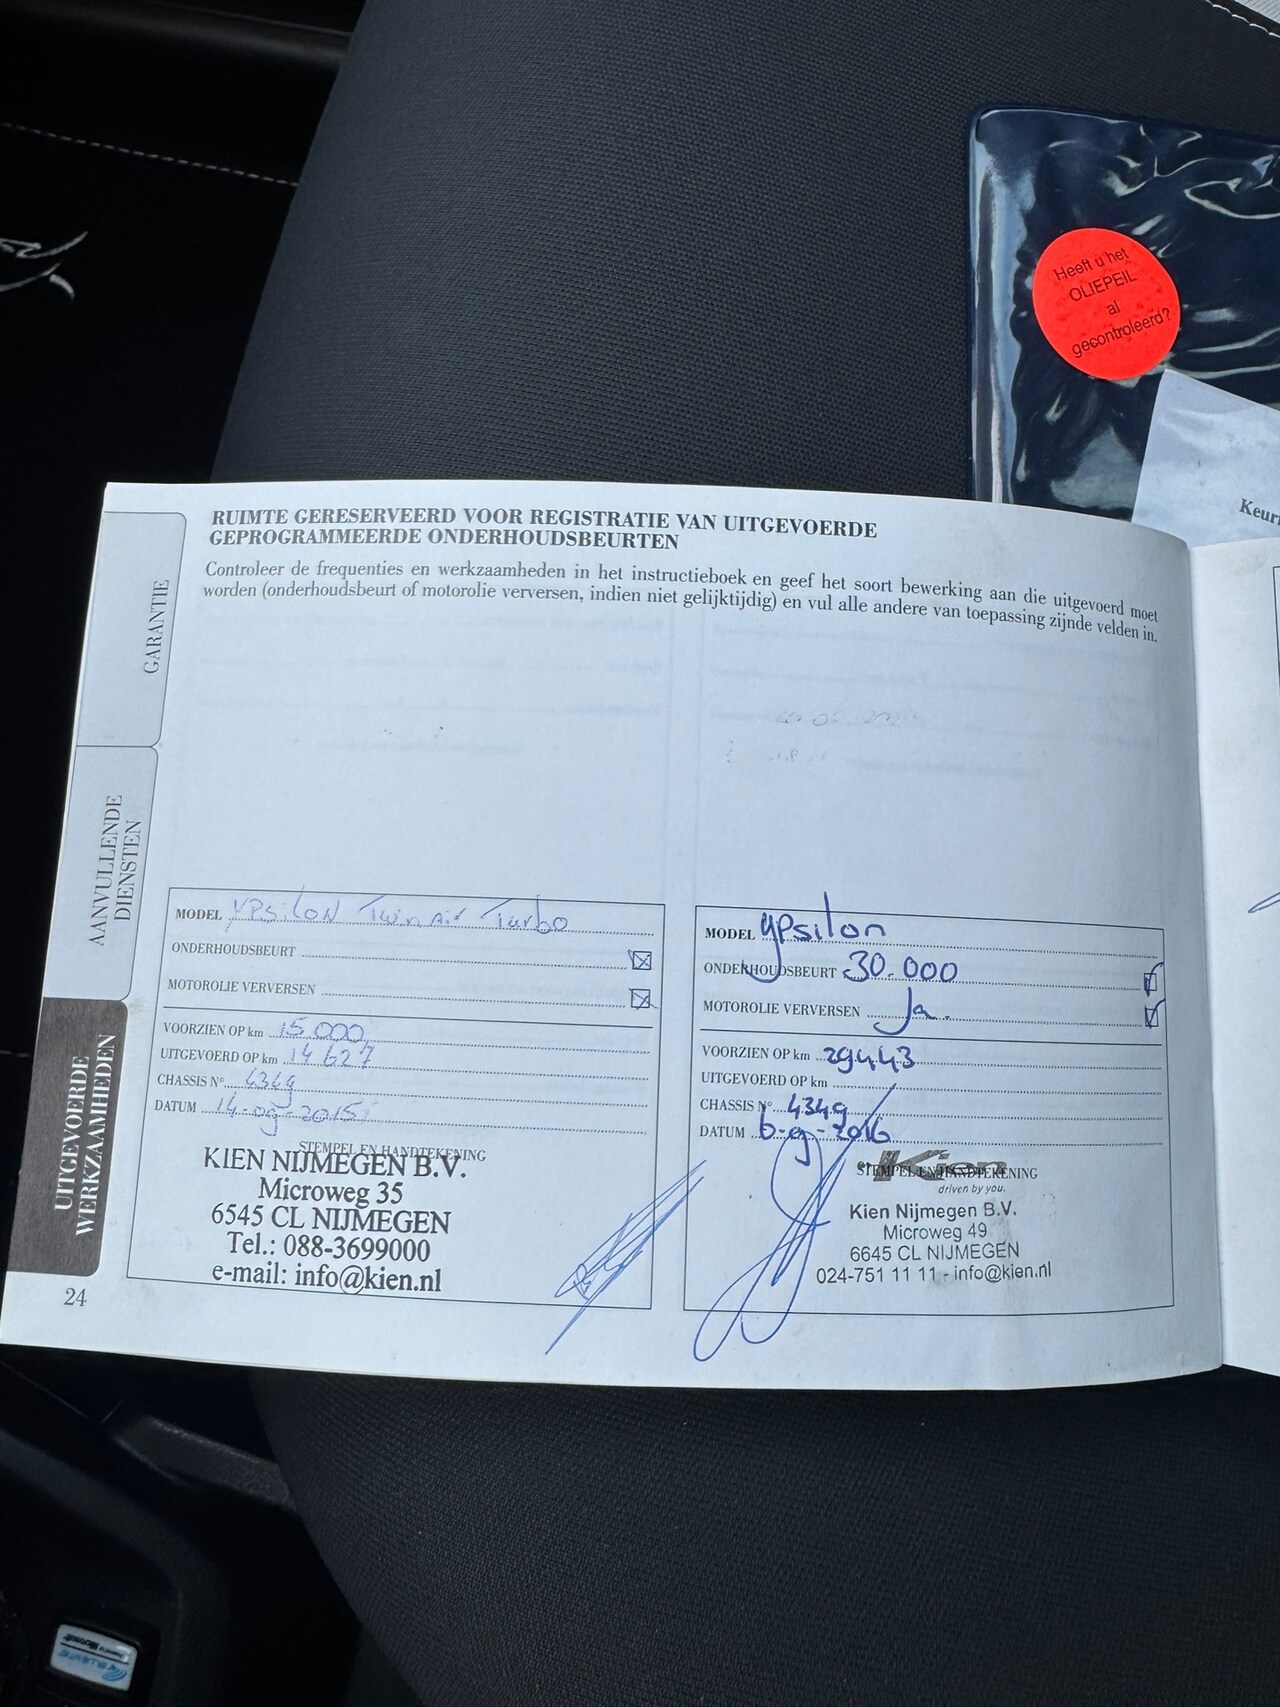 Heeft u het
OLIEPEIL
al
gecontroleerd?
Keur
RUIMTE GERESERVEERD VOOR REGISTRATIE VAN UITGEVOERDE
GEPROGRAMMEERDE ONDERHOUDSBEURTEN
Controleer de frequenties en werkzaamheden in het instructieboek en geef het soort bewerking aan die uitgevoerd moet
worden (onderhoudsbeurt of motorolie verversen, indien niet gelijktijdig) en vul alle andere van toepassing zijnde velden in.
GARANTIE
AANVULLENDE
DIENSTEN
UITGEVOERDE
WERKZAAMHEDEN
MODEL Ypsilon Twin Air Turbo
ONDERHOUDSBEURT
MOTOROLIE VERVERSEN
VOORZIEN OP km 15.000
UITGEVOERD OP km 14 627
CHASSIS N° 4349
DATUM 14-09-2015
STEMPEL EN HANDTEKENING
KIEN NIJMEGEN B.V.
Microweg 35
6545 CL NIJMEGEN
Tel.: 088-3699000
e-mail: info@kien.nl
24
MODEL Ypsilon
ONDERHOUDSBEURT 30.000
MOTOROLIE VERVERSEN Ja.
VOORZIEN OP km 29443
UITGEVOERD OP km
CHASSIS N° 4349
DATUM 6-9-2016
STEMPEL EN HANDTEKENING
Kien
driven by you.
Kien Nijmegen B.V.
Microweg 49
6645 CL NIJMEGEN
024-751 11 11 - info@kien.nl